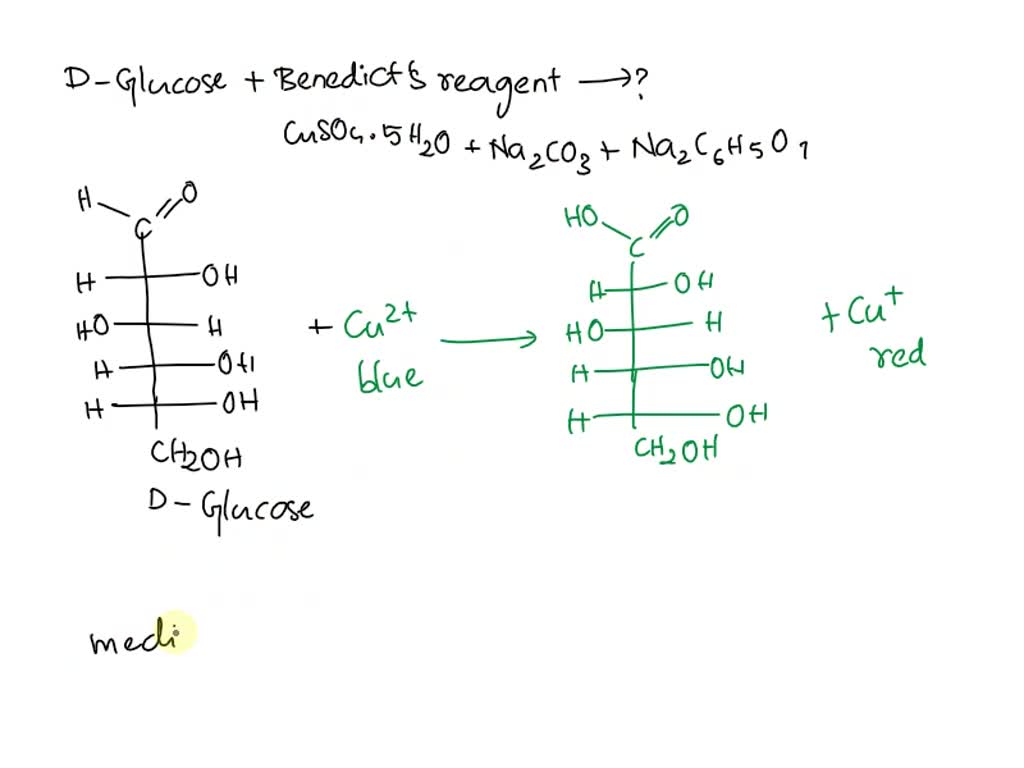 D-Glucose + Benedict's reagent → ?
CuSO4.5H2O + Na2CO3 + Na2C6H5O7
H O
C
H OH
HO H
H OH
H OH
CH2OH
D-Glucose
+ Cu2+
blue
→
HO O
C
H OH
HO H
H OH
H OH
CH2OH
+ Cu+
red
medi